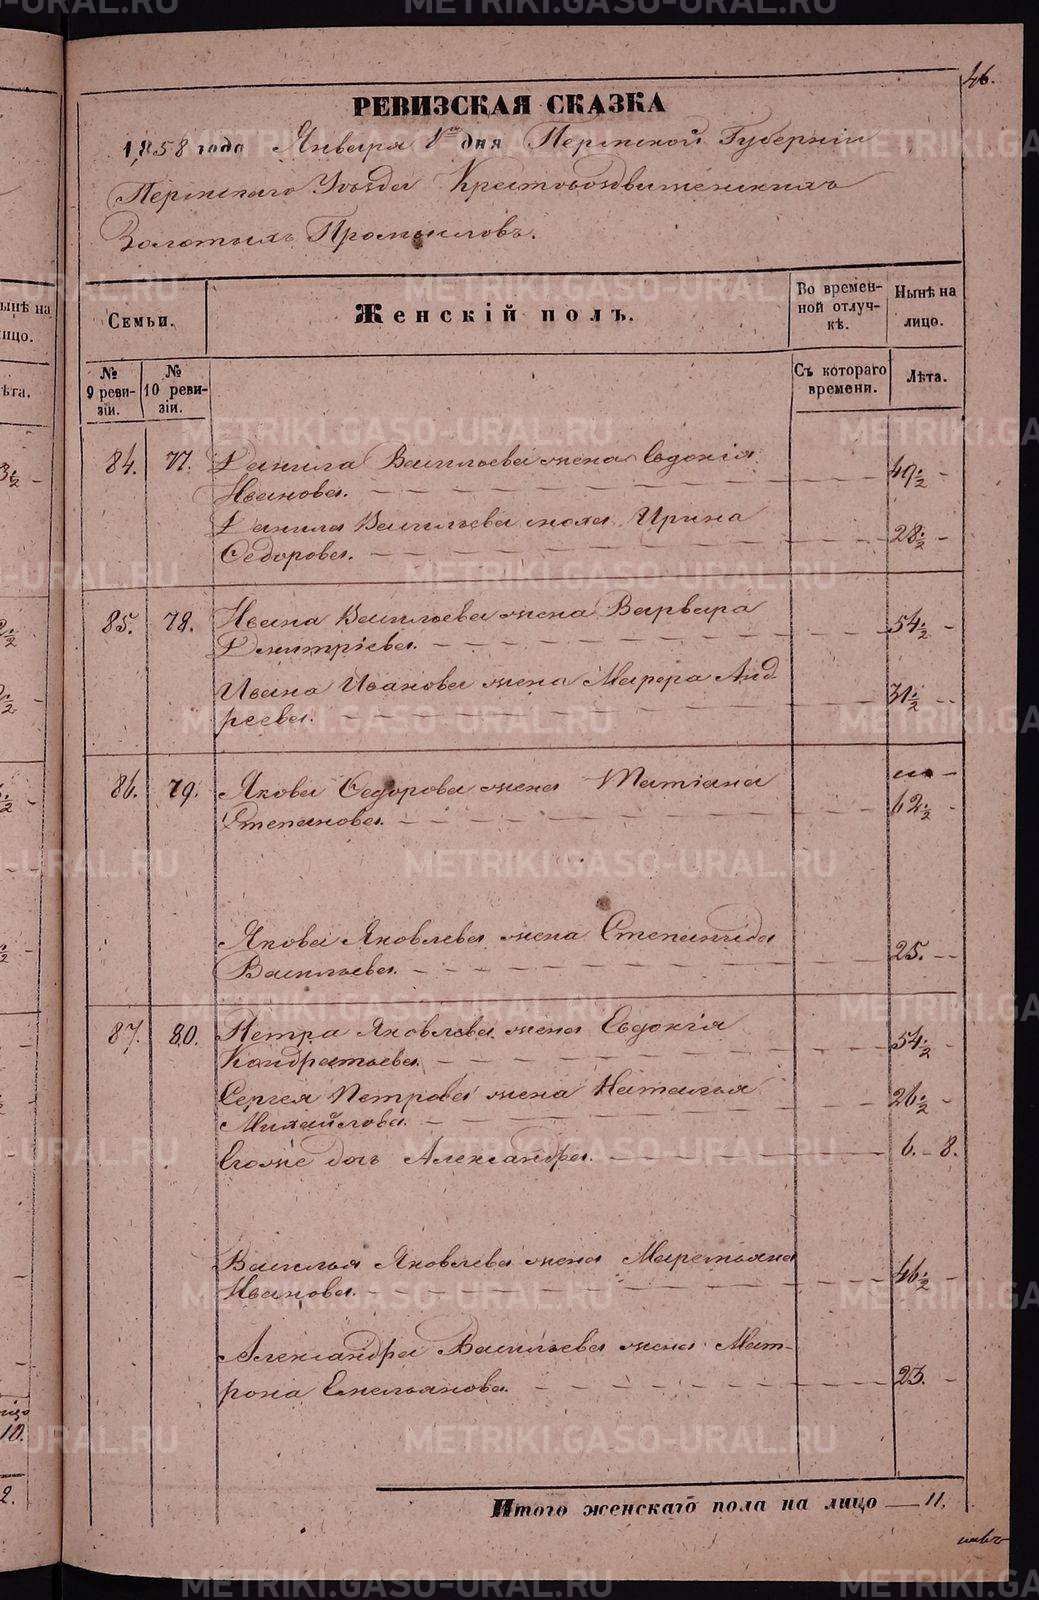 46.
РЕВИЗСКАЯ СКАЗКА
1858 года Января 1го дня Пермской Губерніи
Пермскаго Уѣзда Крестовоздвиженскихъ
Золотыхъ Промысловъ.
Семьи.
Женскій полъ.
Во времен-
ной отлуч-
кѣ.
Нынѣ на
лицо.
№
9 реви-
зіи.
№
10 реви-
зіи.
Съ котораго
времени.
Лѣта.
84. 77. Данила Васильева жена Евдокія
Иванова. 49½
Данила Васильева Ирина
Ѳедорова. 28½
85. 78. Ивана Васильева жена Варвара
Дмитріева. 54½
Ивана Иванова жена Марфа Анд
реева. 31½
86. 79. Якова Ѳедорова жена Татіана
Степанова. 62½
Якова Яковлева жена Степанида
Васильева. 25.
87. 80. Петра Яковлева жена Евдокія
Кондратьева. 54½
Сергея Петрова жена Наталья
Михайлова. 26½
Егоже дочь Александра. 6. - 8.
Василья Яковлева жена Маремьяна
Иванова. 46½
Александра Васильева жена Мат-
рона Емельянова. 23.
Итого женскаго пола на лицо 11.
METRIKI.GASO-URAL.RU